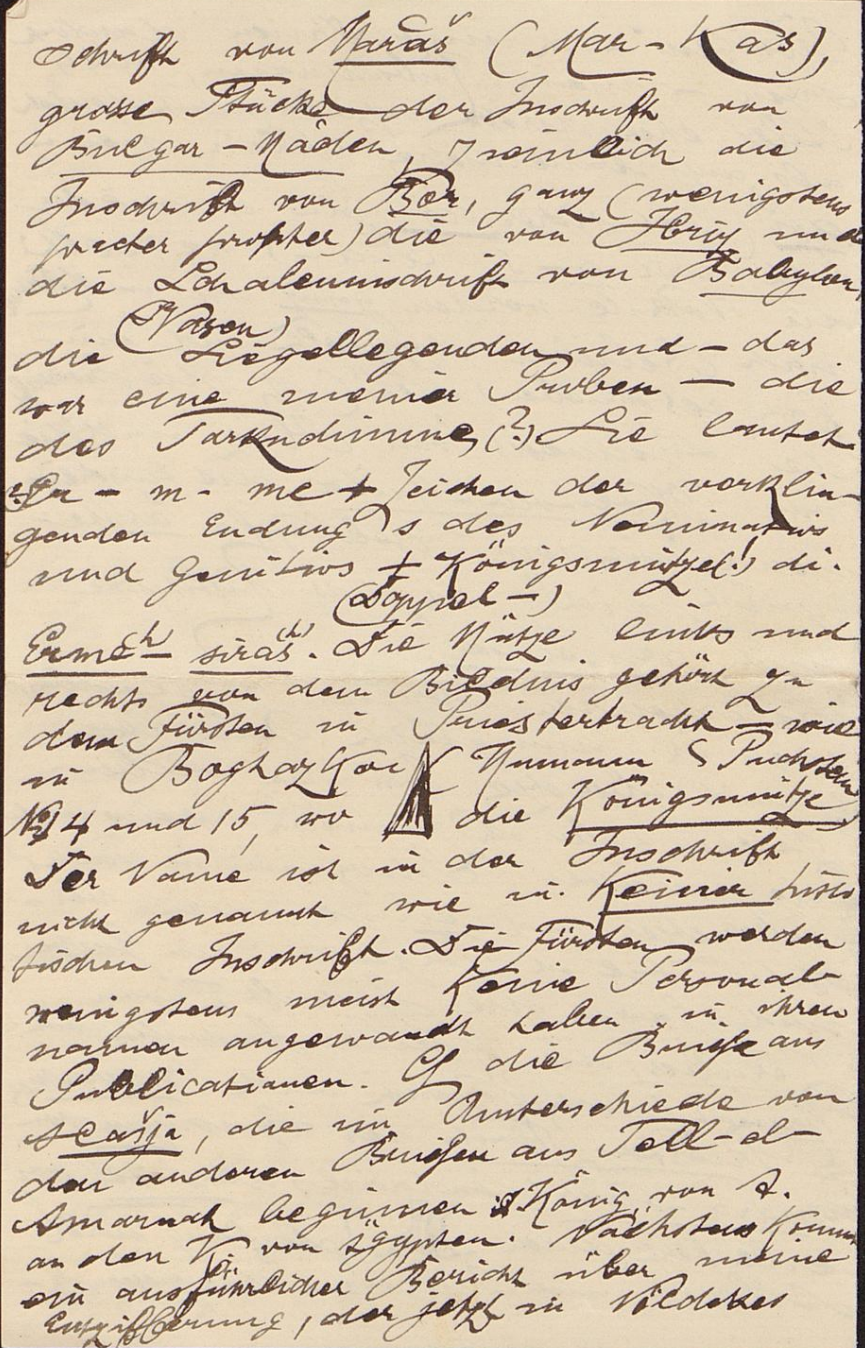 schrift von Maraš (Mar-Kaš),
grosse Stücke der Inschrift von
Bulgar-Maden, ziemlich die
Inschrift von Bor, ganz (wenigstens
praeter propter) die von Ivriz und
die Schaleninschrift von Babylon,
(Vasen)
die Siegellegenden und – das
war eine meiner Proben – die
des Tarkudimme (?) Sie lautet:
- m - me + Zeichen der vorklin-
genden Endung s des Nominativs
und Genitivs + Königsmütze(!) d.i.
(Doppel-)
Erme(h)- siras(h). Die Mütze links und
rechts von dem Bildnis gehört zu
dem Fürsten in Priestertracht – wie
in Boghazkoi Humann & Puchstein
No 14 und 15, wo die Königsmütze
Der Name ist in der Inschrift
nicht genannt wie in keiner
tischen Inschrift. Die Fürsten werden
wenigstens meist keine Personal-
namen angewandt haben in ihren
Publicationen. Cf die Briefe aus
Alašja, die im Unterschiede von
den anderen Briefen aus Tell-el-
Amarnah beginnen: König von A.
an den Kg. von Ägypten. Nächstens kommt
ein ausführlicher Bericht über meine
Entzifferung, der jetzt in Nöldekes